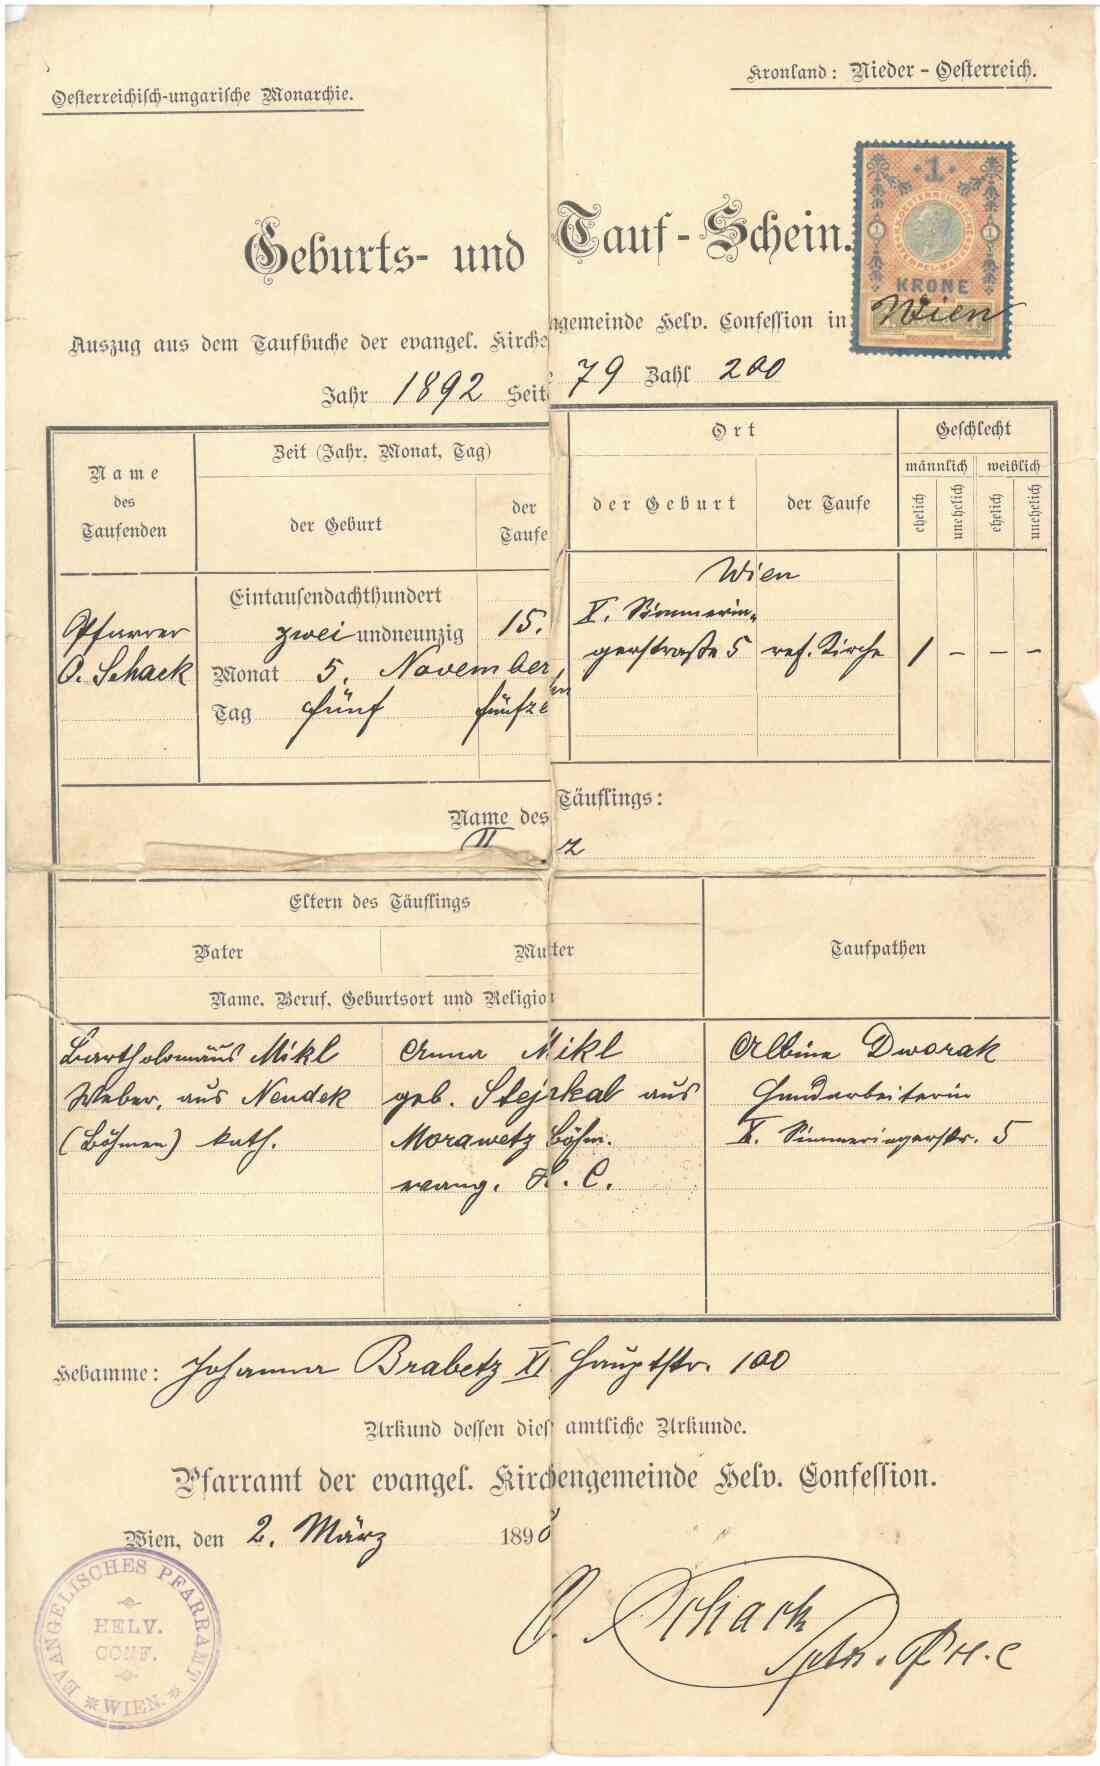 Oesterreichisch-ungarische Monarchie.
Kronland: Nieder-Oesterreich.
1
1 1
KRONE
Geburts- und Tauf-Schein.
Auszug aus dem Taufbuche der evangel. Kirchengemeinde Helv. Confession in Wien
Jahr 1892 Seite 79 Zahl 200
Name des Taufenden
Zeit (Jahr, Monat, Tag)
der Geburt
der Taufe
Ort
der Geburt
der Taufe
Geschlecht
männlich weiblich
ehelich unehelich ehelich unehelich
Pfarrer
O. Schack
Eintausendachthundert
zwei undneunzig 15.
Monat 5. November
Tag fünf fünfzehn
Wien
X. Simmerin-
gerstraße 5 ref. Kirche 1 – – –
Name des Täuflings:
Eltern des Täuflings
Vater Mutter
Taufpathen
Name, Beruf, Geburtsort und Religion
Bartholomäus Mikl
Weber, aus Neudek
(Böhmen) kath.
Anna Mikl
geb. Stejskal aus
Morawetz Böhm.
evang. H. C.
Albine Dworak
Handarbeiterin
X. Simmeringerstr. 5
Hebamme: Johanna Brabetz XI Hauptstr. 100
Urkund dessen diese amtliche Urkunde.
Pfarramt der evangel. Kirchengemeinde Helv. Confession.
Wien, den 2. März 189
O. Schack
H. C
EVANGELISCHES PFARRAMT
HELV.
CONF.
* WIEN. *